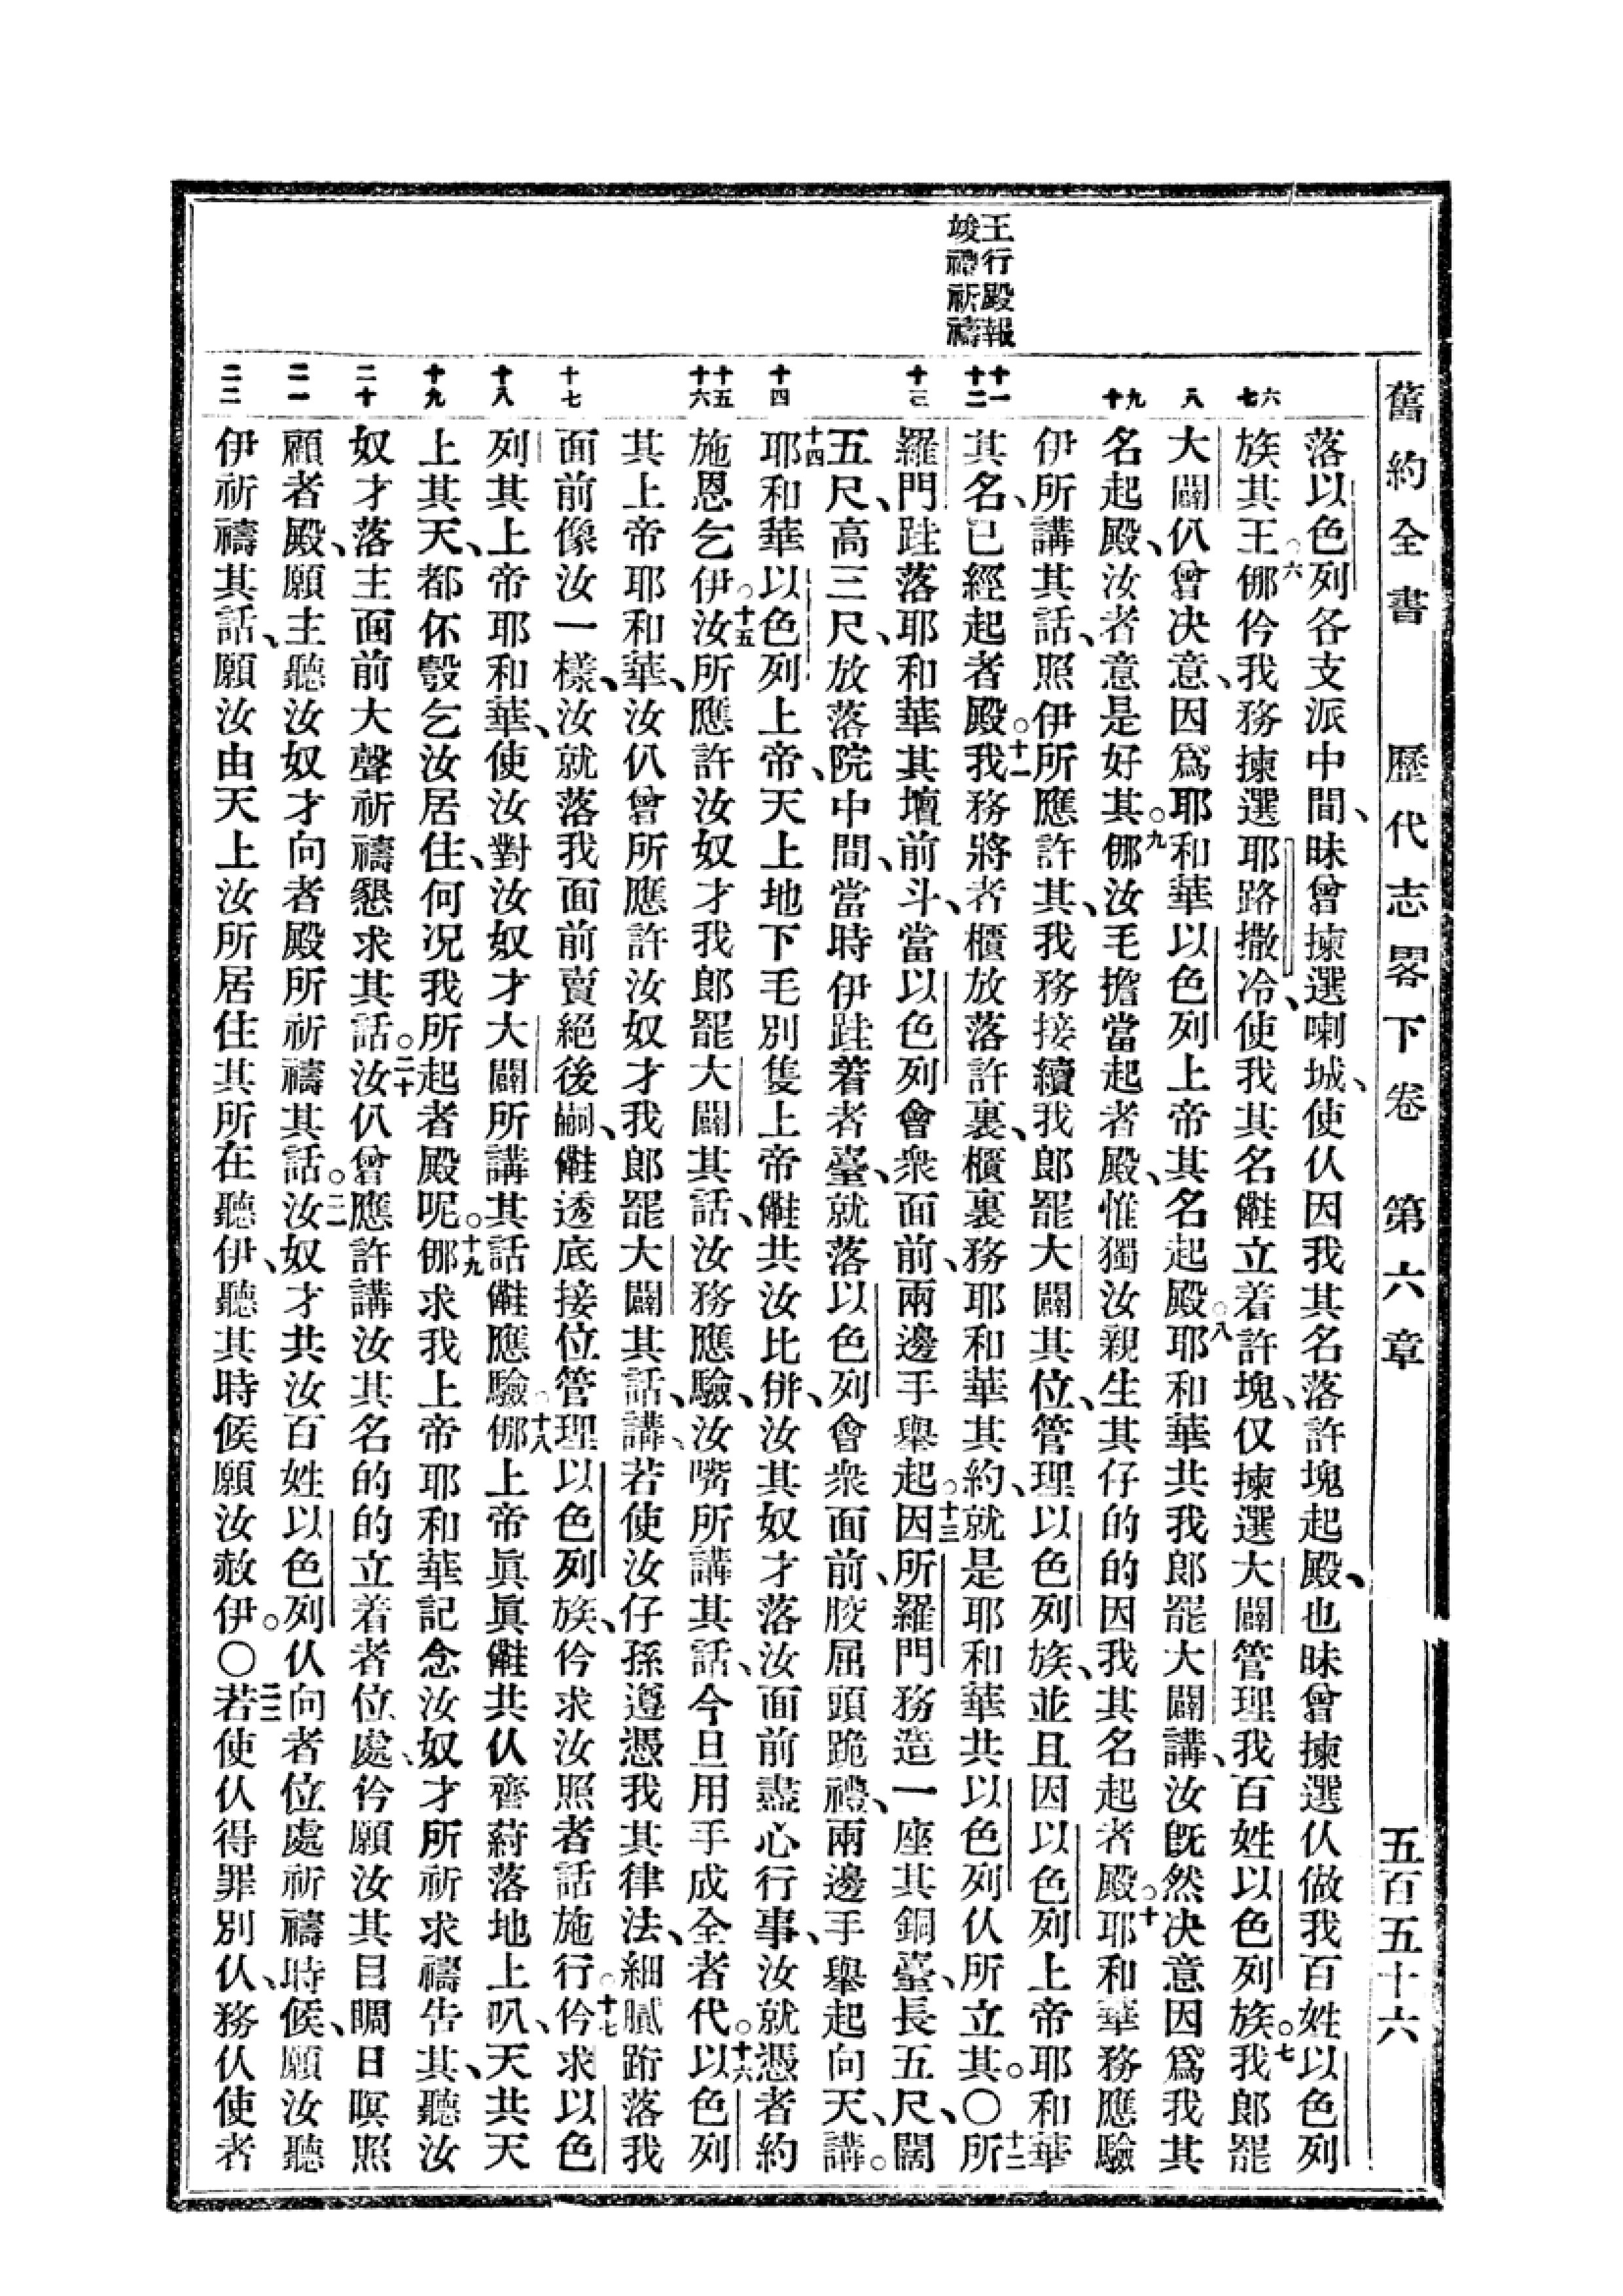 舊約全書 歷代志畧下卷 第六章 五百五十六
王行殿報
竣禮祈禱
六 七 八 九 十 十一 十二 十三 十四 十五 十六 十七 十八 十九 二十 二一 二二
落以色列各支派中間、昧曾揀選喇城、使仈因我其名落許塊起殿、也昧曾揀選仈做我百姓以色列
族其王○六㑚仱我務揀選耶路撒冷、使我其名𣍐立着許塊、仅揀選大闢管理我百姓以色列族。七我郎罷
大闢仈曾决意、因爲耶和華以色列上帝其名起殿○八耶和華共我郎罷大闢講、汝旣然决意因爲我其
名起殿、汝者意是好其。九㑚汝毛擔當起者殿、惟獨汝親生其仔的的因我其名起者殿○十耶和華務應驗
伊所講其話、照伊所應許其、我務接續我郎罷大闢其位、管理以色列族、並且因以色列上帝耶和華
其名、已經起者殿○十一我務將者櫃放落許裏、櫃裏務耶和華其約、就是耶和華共以色列仈所立其。〇十二所
羅門跬落耶和華其壇前斗、當以色列會衆面前、兩邊手舉起○十三因所羅門務造一座其銅臺、長五尺、闊
五尺、高三尺、放落院中間、當時伊跬着者臺、就落以色列會衆面前、胶屈頭跪禮、兩邊手舉起向天、講。
十四耶和華以色列上帝、天上地下毛別隻上帝𣍐共汝比併、汝其奴才落汝面前盡心行事、汝就憑者約
施恩乞伊○十五汝所應許汝奴才我郎罷大闢其話、汝務應驗、汝嘴所講其話、今旦用手成全者代。十六以色列
其上帝耶和華、汝仈曾所應許汝奴才我郎罷大闢其話、講、若使汝仔孫遵憑我其律法、細膩跡落我
面前像汝一樣、汝就落我面前賣絕後嗣、𣍐透底接位管理以色列族、仱求汝照者話施行○十七仱求以色
列其上帝耶和華、使汝對汝奴才大闢所講其話𣍐應驗○十八㑚上帝眞眞𣍐共仈齊蒔落地上叭、天共天
上其天、都伓彀乞汝居住、何况我所起者殿呢。十九㑚求我上帝耶和華記念汝奴才所祈求禱告其、聽汝
奴才落主面前大聲祈禱懇求其話。二十汝仈曾應許講汝其名的的立着者位處、仱願汝其目瞯日暝照
顧者殿、願主聽汝奴才向者殿所祈禱其話。二一汝奴才共汝百姓以色列仈向者位處祈禱時候、願汝聽
伊祈禱其話、願汝由天上汝所居住其所在聽伊、聽其時候願汝赦伊。〇二二若使仈得罪別仈、務仈使者